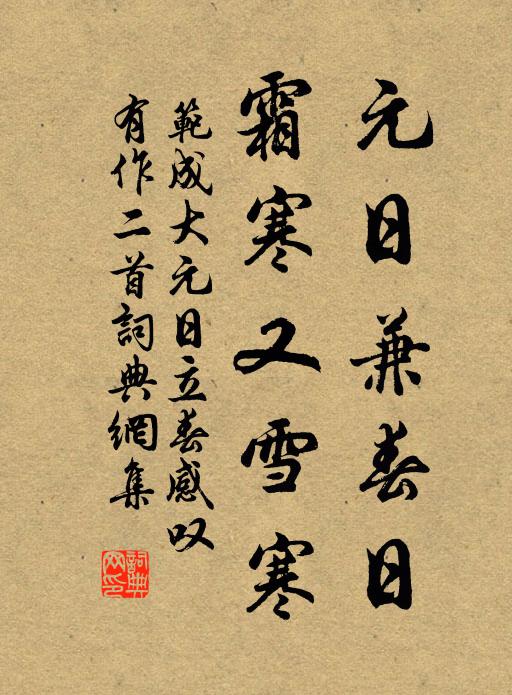 元日兼春日
霜寒又雪寒
範成大元日立春感叹
有作二首詞典網集
詞典网印